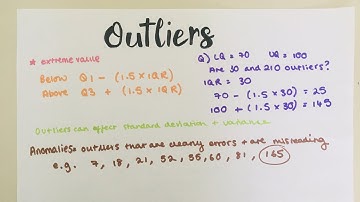 Outliers
* extreme value
Below Q1 - (1.5 x IQR)
Above Q3 + (1.5 x IQR)
Q) LQ = 70 UQ = 100
Are 30 and 210 outliers?
IQR = 30
70 - (1.5 x 30) = 25
100 + (1.5 x 30) = 145
Outliers can effect standard deviation + variance
Anomalies = outliers that are clearly errors + are misreading
e.g. 7, 18, 21, 52, 55, 60, 81, 165